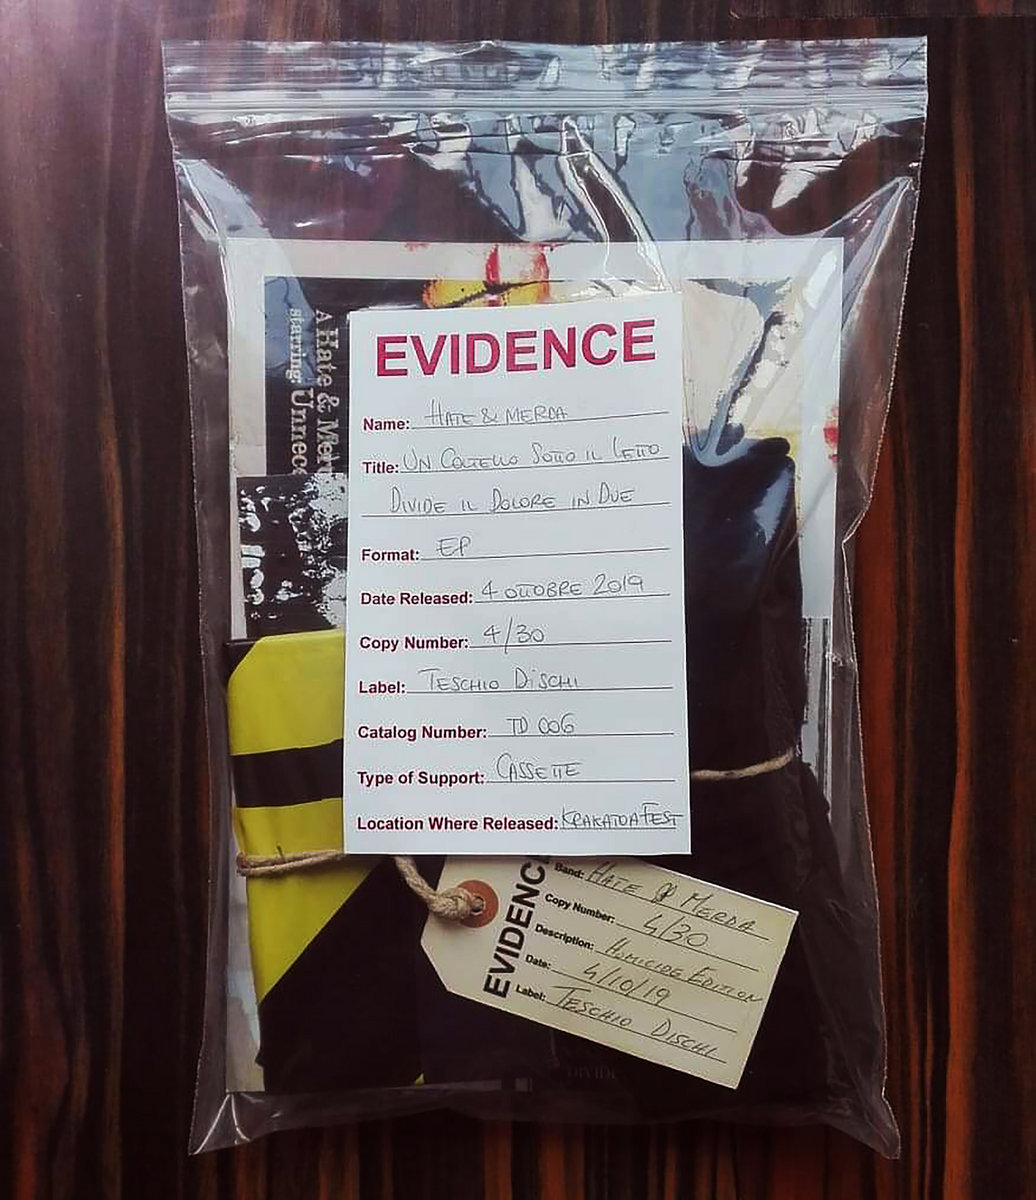 A Hate & Mer
starring: Unnec
EVIDENCE
Name: HATE & MERDA
Title: UN COLTELLO SOTTO IL LETTO
DIVIDE IL DOLORE IN DUE
Format: EP
Date Released: 4 OTTOBRE 2019
Copy Number: 4/30
Label: TESCHIO DISCHI
Catalog Number: TD 006
Type of Support: CASSETTE
Location Where Released: KRAKATOA FEST
EVIDENC
Band: HATE & MERDA
Copy Number: 4/30
Description: HOMICIDE EDITION
Date: 4/10/19
Label: TESCHIO DISCHI
DIVIDE